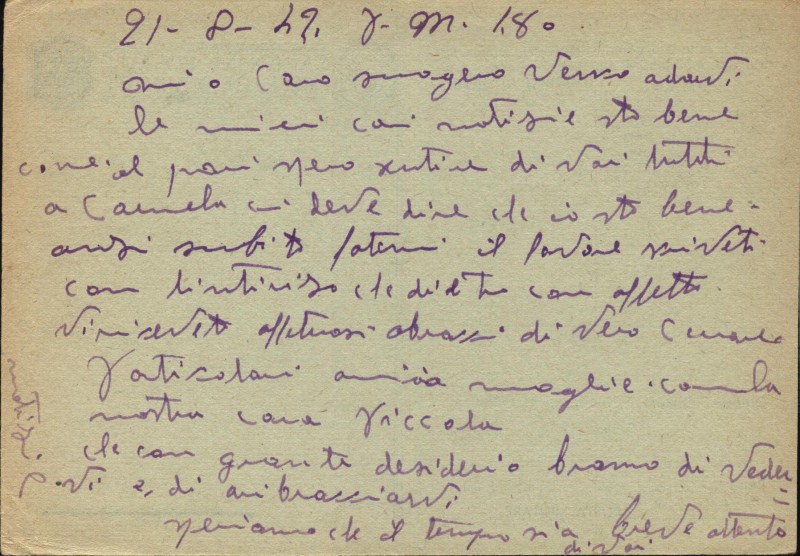 21-8-42. P.M. 180
mio Caro suogero Vengo adarvi
le miei cari notisie sto bene
come il pari spero sentire di voi tutti
a Carmela ci deve dire che io sto bene-
ansi subito fatemi il favore scriveti
con l'intiriso che di con affetto
Viricevete affettuosi abracci di vero Genare
Particolari a mia moglie. con la
nostra cara Piccola
che con grante desiderio bramo di veder=
vi e, di mibracciarvi
speriamo che il tempo sia breve attento
di voi
notisie.